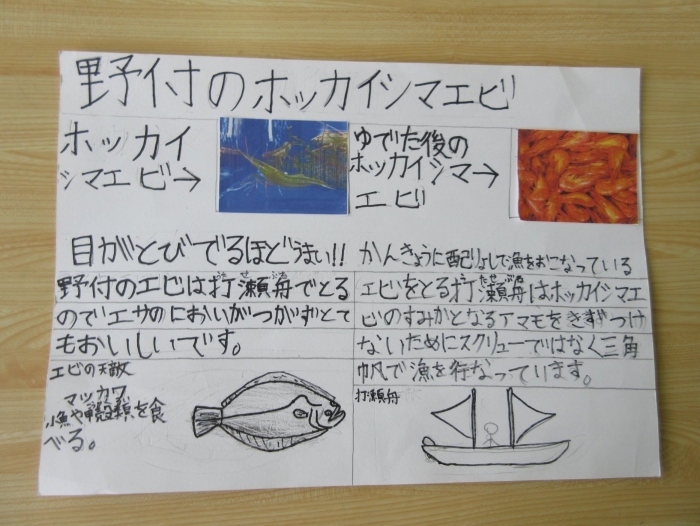 野付のホッカイシマエビ
ホッカイ
シマエビ→
ゆでた後の
ホッカイシマ→
エビ
目がとびでるほどうまい!!
野付のエビは打瀬舟でとる
のでエサのにおいがつかずとて
もおいしいです。
かんきょうに配りょして漁をおこなっている
エビをとる打瀬舟はホッカイシマエ
ビのすみかとなるアマモをきずつけ
ないためにスクリューではなく三角
帆で漁を行なっています。
エビの天敵
マッカワ
小魚や甲殻類を食
べる。
打瀬舟